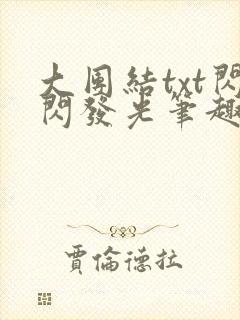 大團結txt閃
閃發光筆趣
賈倫德拉